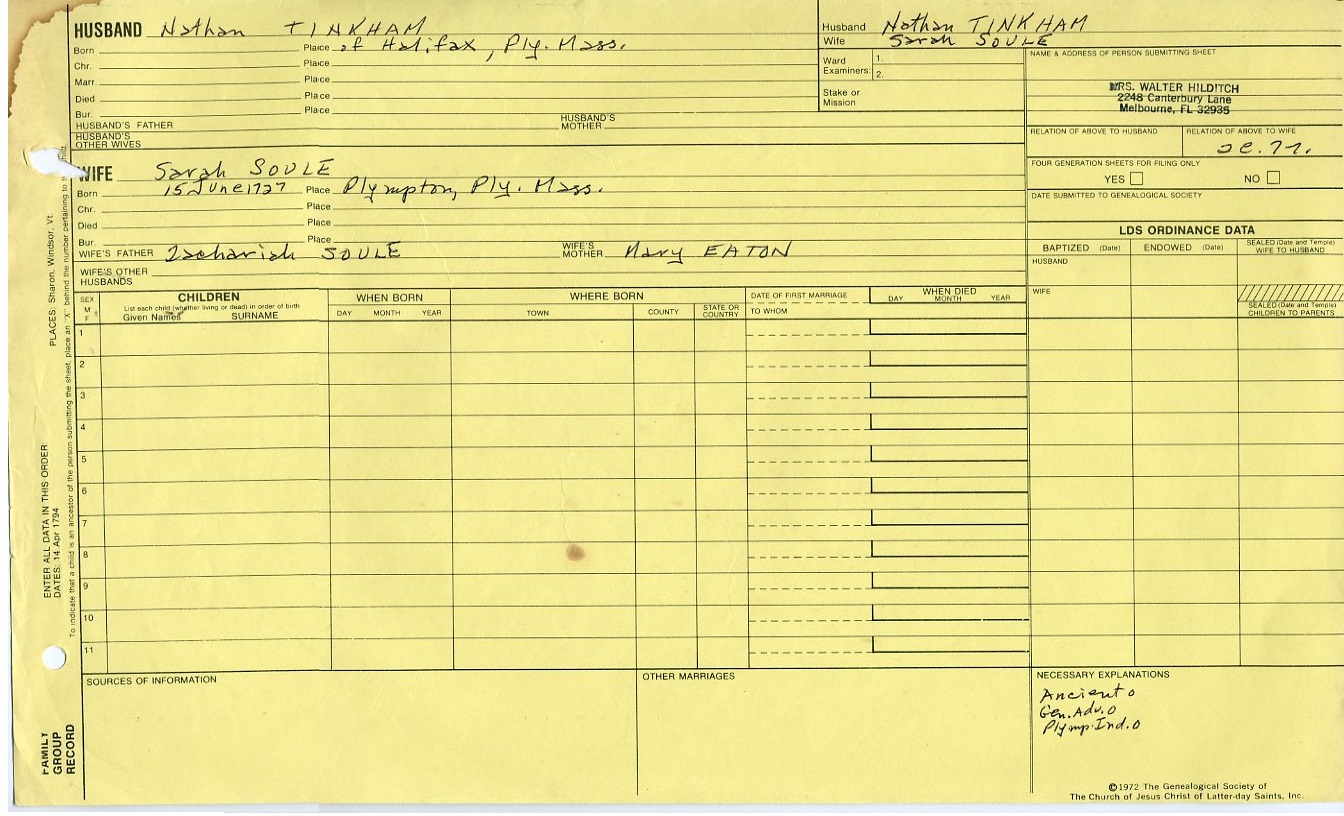 HUSBAND Nathan TINKHAM
Born Place of Halifax, Ply. Mass.
Chr. Place
Marr. Place
Died Place
Bur. Place
HUSBAND'S FATHER HUSBAND'S MOTHER
HUSBAND'S OTHER WIVES
Husband Nathan TINKHAM
Wife Sarah SOULE
Ward Examiners: 1.
2.
Stake or Mission
NAME & ADDRESS OF PERSON SUBMITTING SHEET
MRS. WALTER HILDITCH
2248 Canterbury Lane
Melbourne, FL 32935
RELATION OF ABOVE TO HUSBAND RELATION OF ABOVE TO WIFE
FOUR GENERATION SHEETS FOR FILING ONLY
YES NO
DATE SUBMITTED TO GENEALOGICAL SOCIETY
WIFE Sarah SOULE
Born 15 June 1727 Place Plympton, Ply. Mass.
Chr. Place
Died Place
Bur. Place
WIFE'S FATHER Zachariah SOULE WIFE'S MOTHER Mary EATON
WIFE'S OTHER HUSBANDS
LDS ORDINANCE DATA
BAPTIZED (Date) ENDOWED (Date) SEALED (Date and Temple) WIFE TO HUSBAND
HUSBAND
WIFE
SEALED (Date and Temple) CHILDREN TO PARENTS
SEX M F
CHILDREN
List each child (whether living or dead) in order of birth
Given Names SURNAME
WHEN BORN
DAY MONTH YEAR
WHERE BORN
TOWN COUNTY STATE OR COUNTRY
DATE OF FIRST MARRIAGE
TO WHOM
WHEN DIED
DAY MONTH YEAR
1
2
3
4
5
6
7
8
9
10
11
SOURCES OF INFORMATION
OTHER MARRIAGES
NECESSARY EXPLANATIONS
Ancient o
Gen. Adv. o
Plymp. Ind. o
©1972 The Genealogical Society of
The Church of Jesus Christ of Latter-day Saints, Inc.
FAMILY GROUP RECORD
ENTER ALL DATA IN THIS ORDER:
DATES: 14 Apr 1794 PLACES: Sharon, Windsor, Vt.
To indicate that a child is an ancestor of the person submitting the sheet, place an "X" behind the number pertaining to child.